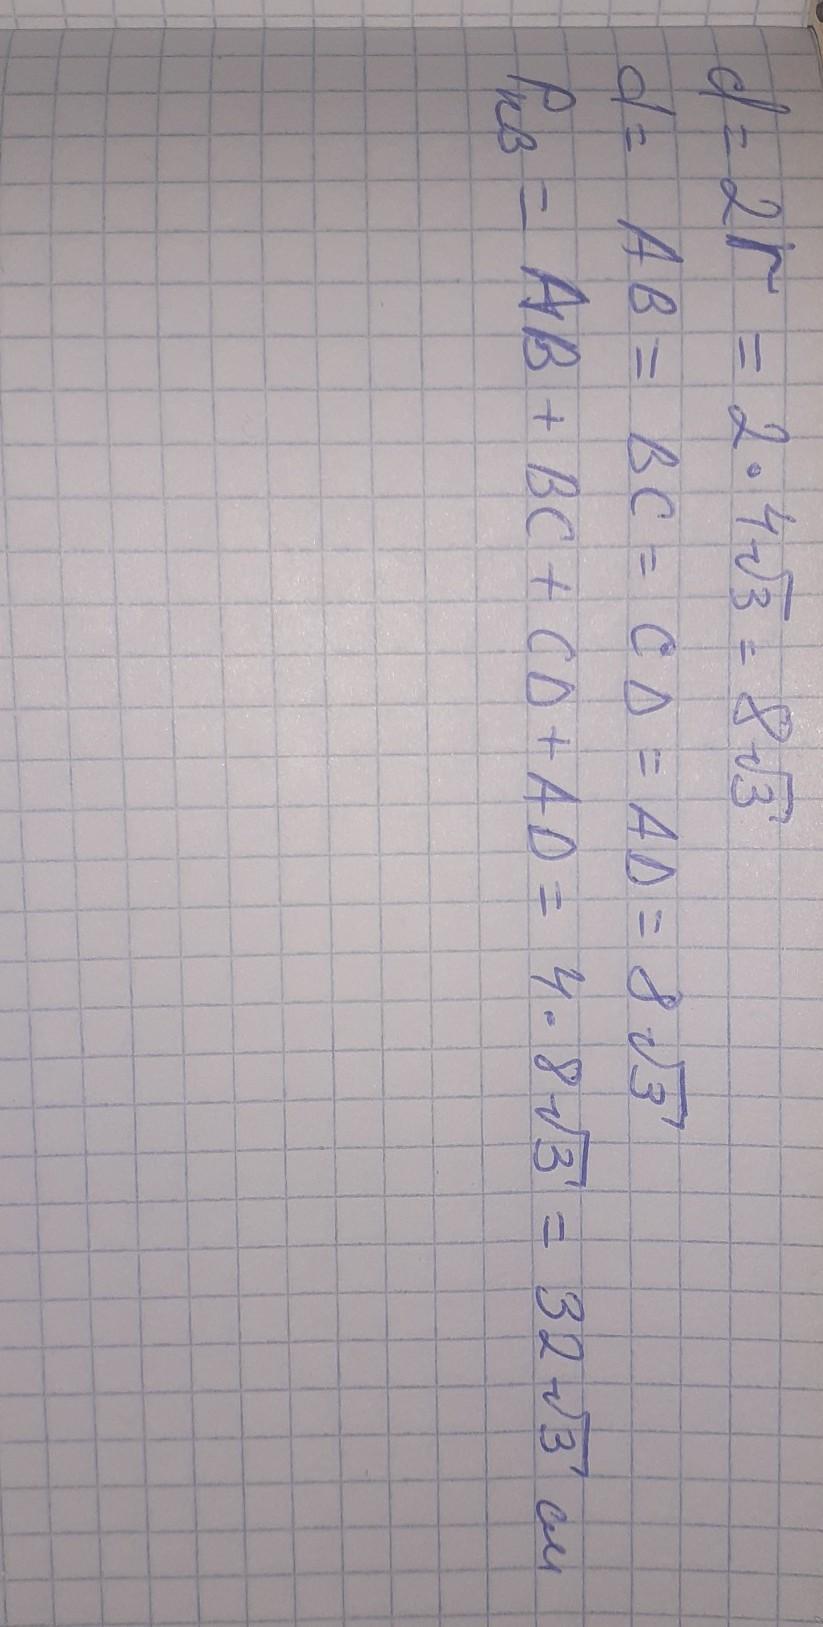 d = 2r = 2 · 4√3 = 8√3
d = AB = BC = CD = AD = 8√3
Pкв = AB + BC + CD + AD = 4 · 8√3 = 32√3 см